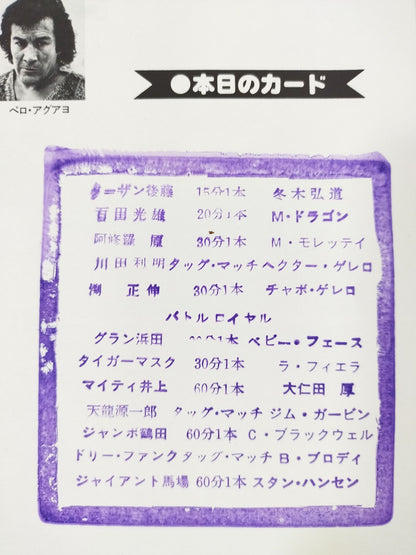 ペロ・アグアヨ
●本日のカード
ターザン後藤 15分1本 冬木弘道
百田光雄 20分1本 M・ドラゴン
阿修羅 原 30分1本 M・モレッティ
川田利明 タッグ・マッチ ヘクター・ゲレロ
正伸 30分1本 チャボ・ゲレロ
バトルロイヤル
グラン浜田 分1本 ベビー・フェース
タイガーマスク 30分1本 ラ・フィエラ
マイティ井上 60分1本 大仁田 厚
天龍源一郎 タッグ・マッチ ジム・ガービン
ジャンボ鶴田 60分1本 C・ブラックウェル
ドリー・ファンク タッグ・マッチ B・ブロディ
ジャイアント馬場 60分1本 スタン・ハンセン